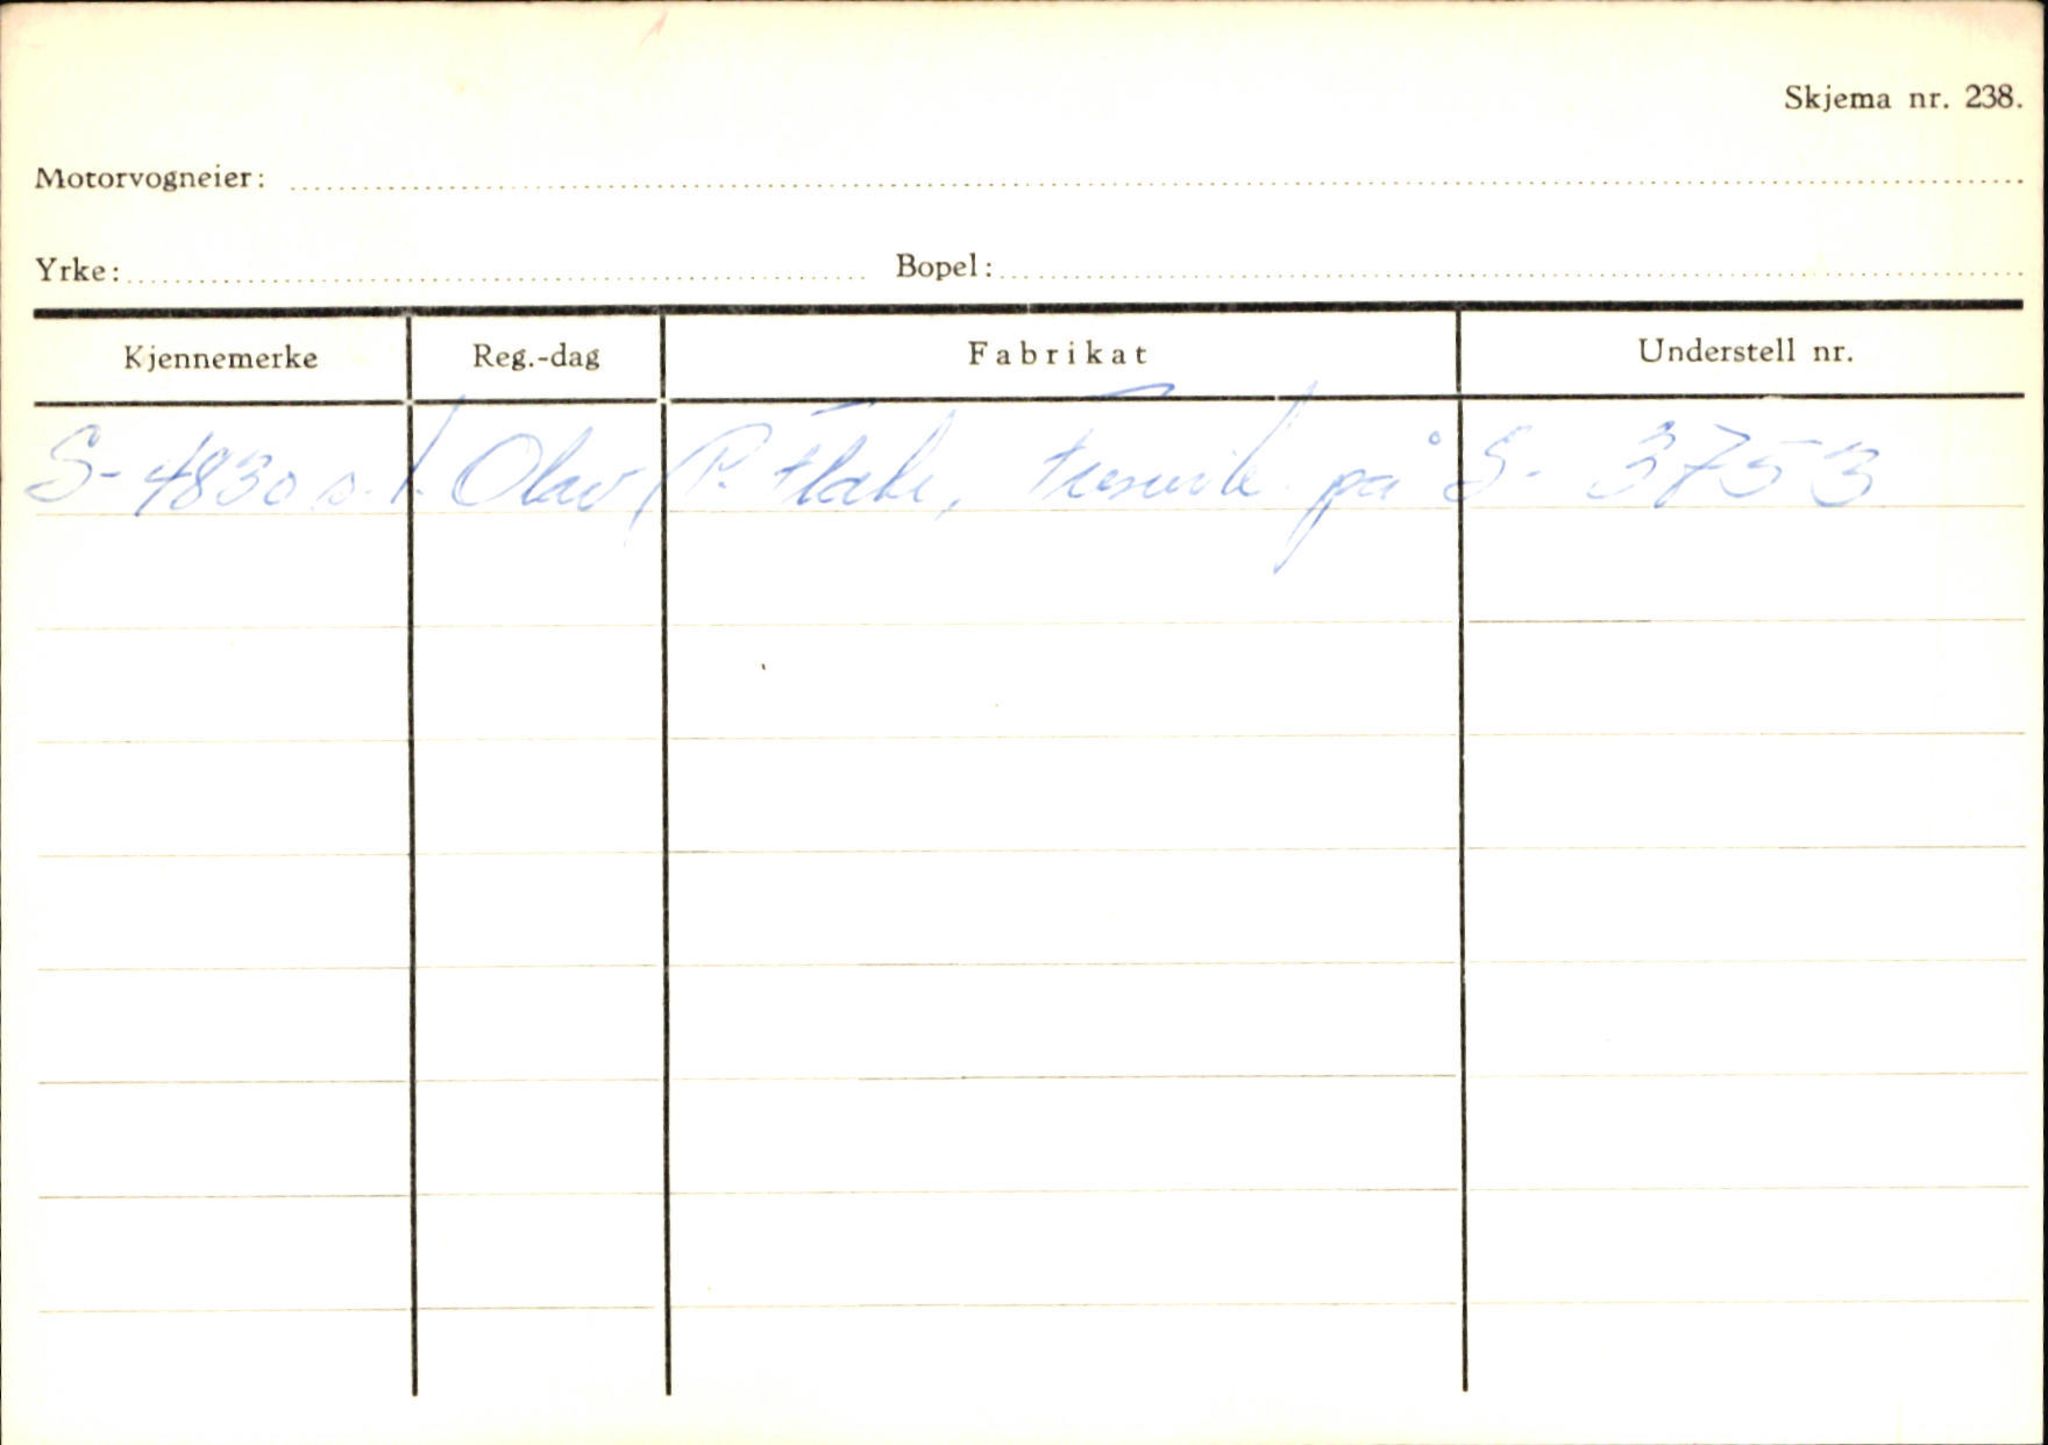 Skjema nr. 238.
Motorvogneier:
Yrke: Bopel:
Kjennemerke Reg.-dag Fabrikat Understell nr.
S-4830 s. t. Olav P. på S- 3753